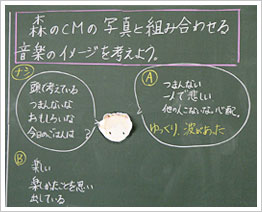 森のCMの写真と組み合わせる
音楽のイメージを考えよう。
ナシ
頭で考えている
つまんないな
おもしろいな
今日のごはんは?
A
つまんない
一人で悲しい
他の人こないな。心配。
ゆっくり、波があった
B
楽しい
楽しかったことを思い
出している